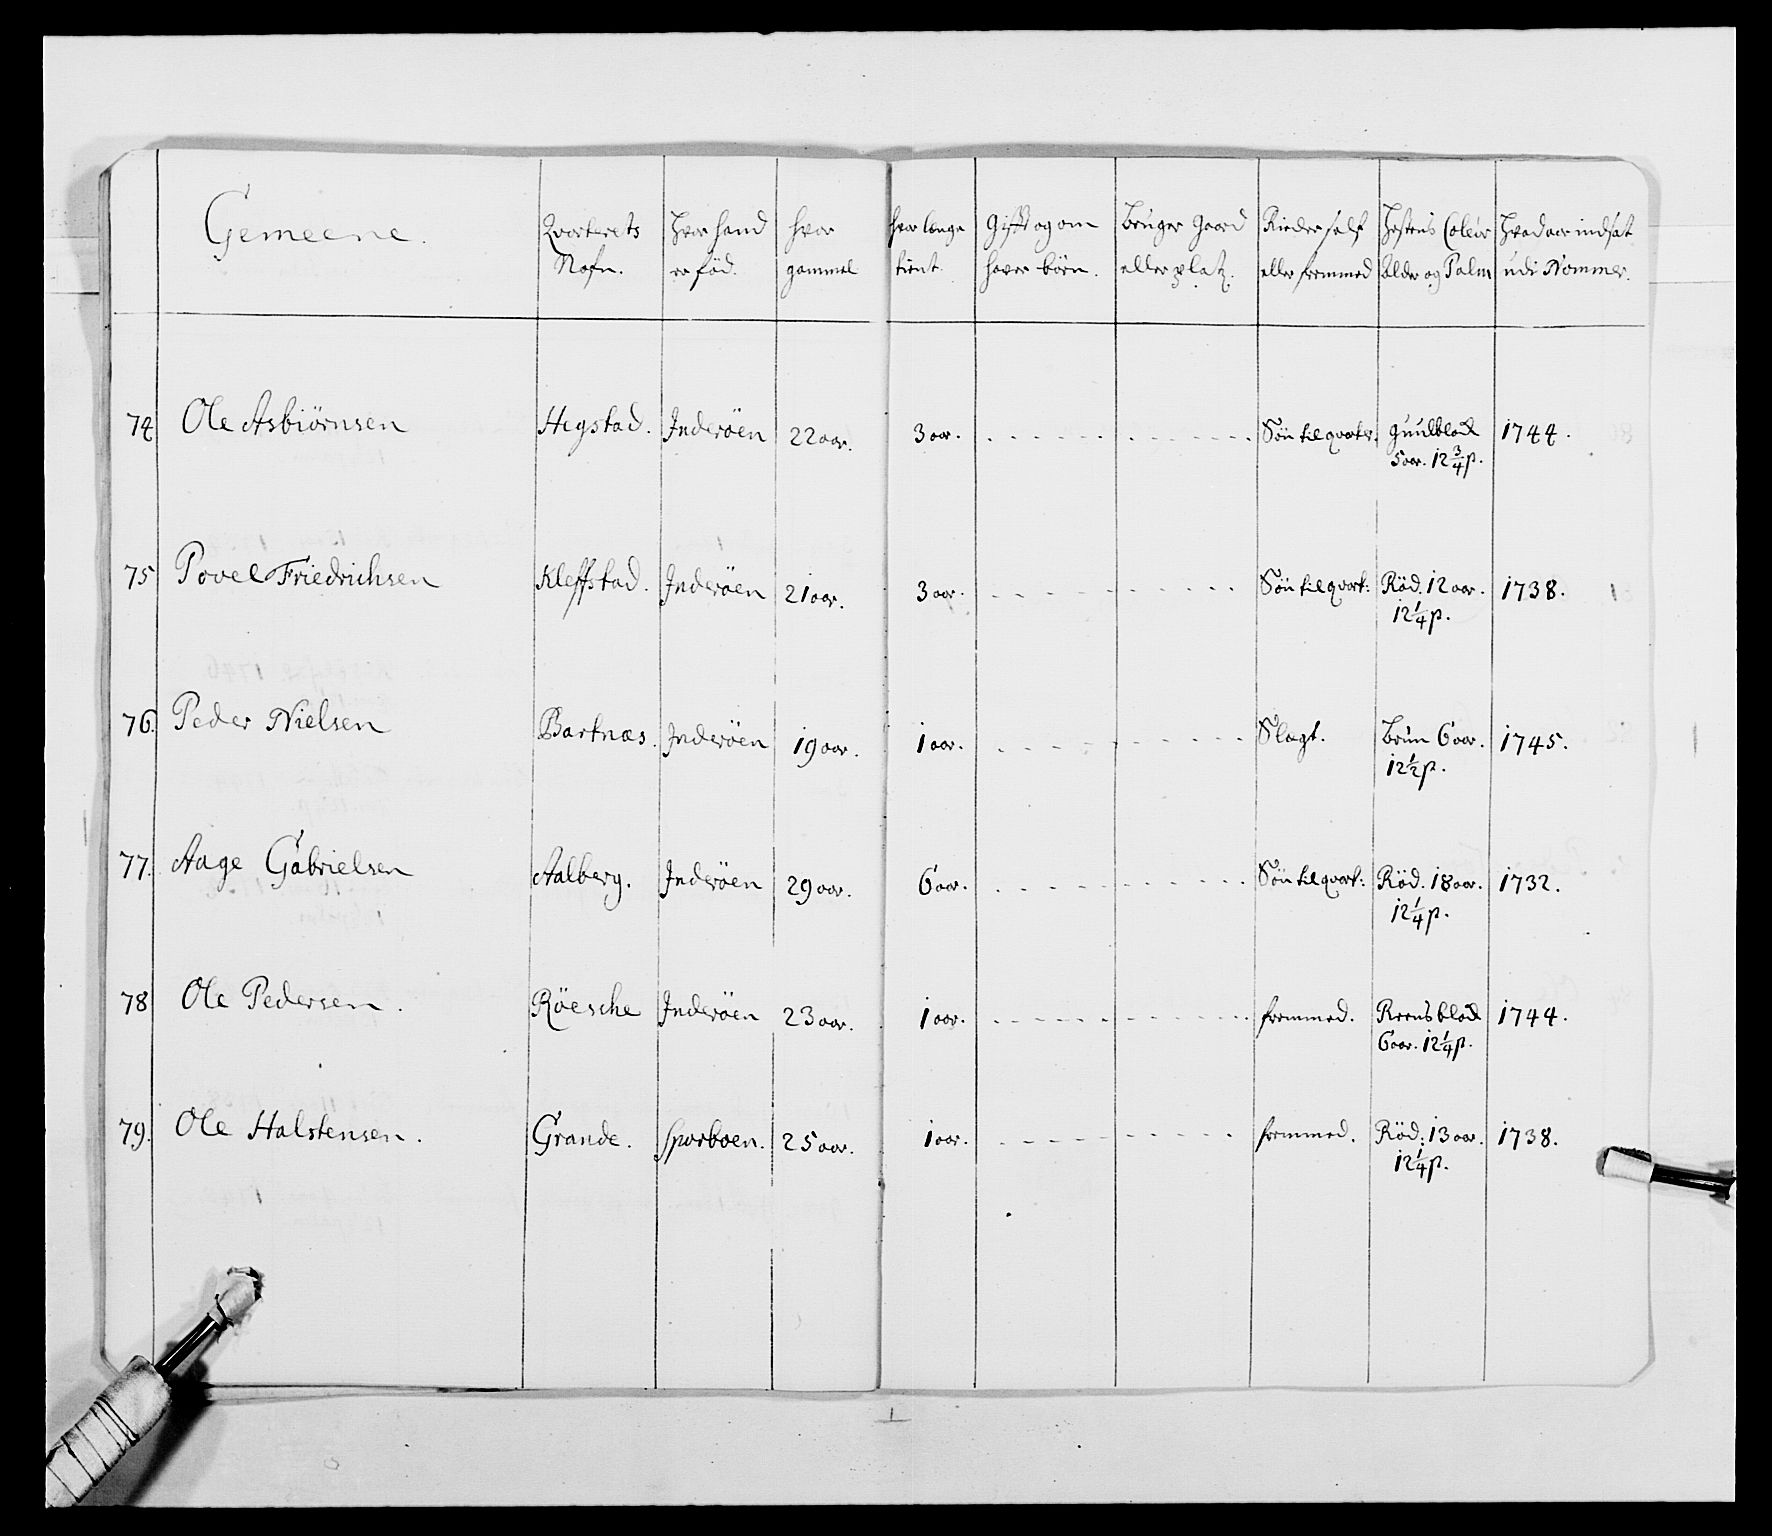 Gemeene. Qvarterets Nafn. Hvor hand er född. hvor gammel hvor længe tient. Gifft og om haver börn. Bruger Gaard eller platz. Rieder self eller fremmed Hestens Coleur Alder og Palm Hvad aar indsat udi Nommer.
74 Ole Asbiörnsen Hegstad. Inderöen 22 aar. 3 aar. Sön til qvarter: Guulblak 5 aar. 12 3/4 p. 1744.
75 Povel Friedrichsen Kleffstad. Inderöen 21 aar. 3 aar. Sön til qvart: Röd. 12 aar. 12 1/4 p. 1738.
76. Peder Nielsen Bartnæs. Inderöen 19 aar. 1 aar. Slagt. Brun 6 aar. 12 1/2 p. 1745.
77. Aage Gabrielsen Aalberg. Inderöen 29 aar. 6 aar. Sön til qvart: Röd. 18 aar. 12 1/4 p. 1732.
78 Ole Pedersen. Röesche Inderöen 23 aar. 1 aar. fremmed. 6 aar. 12 1/4 p. 1744.
79. Ole Halstensen. Grande. Sparboen. 25 aar. 1 aar. fremmed. Röd: 13 aar. 12 1/4 p. 1738.